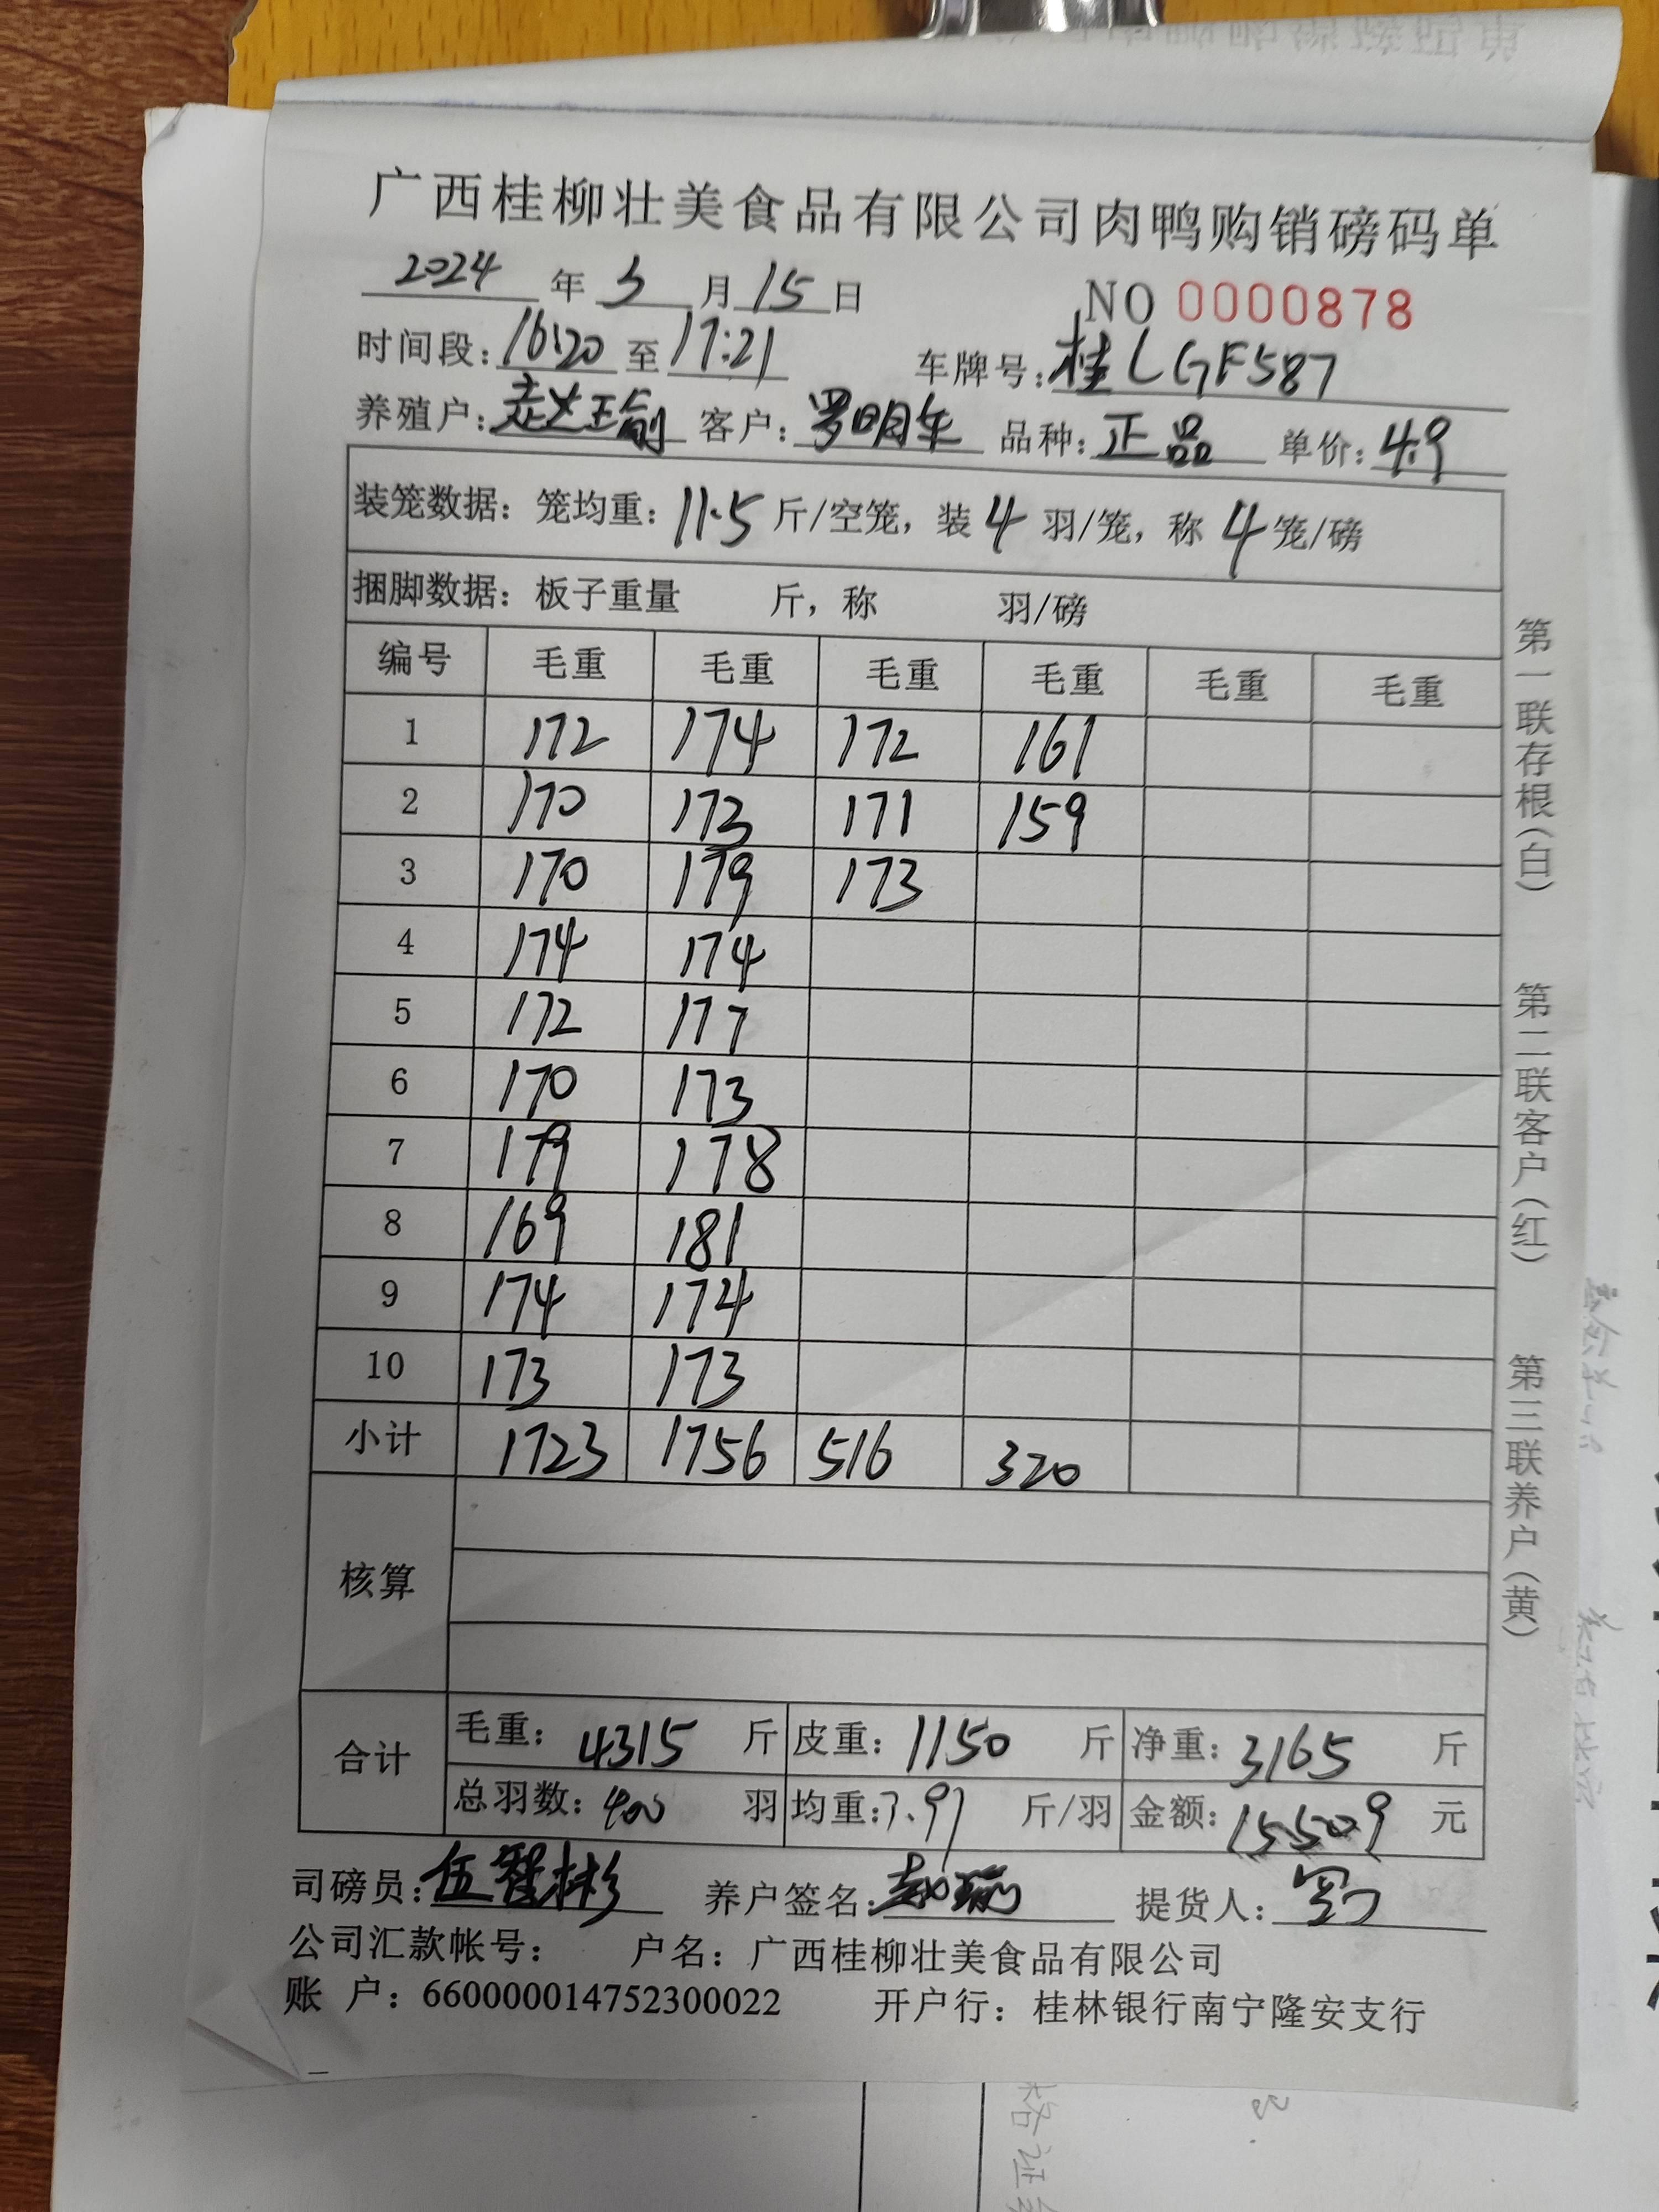 广西桂柳壮美食品有限公司肉鸭购销磅码单
2024 年 3 月 15 日 NO 0000878
时间段：16:20 至 17:21 车牌号：桂LGF587
养殖户： 客户：罗明年 品种：正品 单价：4.9
装笼数据：笼均重：11.5 斤/空笼，装 4 羽/笼，称 4 笼/磅
捆脚数据：板子重量 斤，称 羽/磅
编号 毛重 毛重 毛重 毛重 毛重 毛重
1 172 174 172 161
2 170 173 171 159
3 170 179 173
4 174 174
5 172 177
6 170 173
7 179 178
8 169 181
9 174 174
10 173 173
小计 1723 1756 516 320
核算
合计
毛重：4315 斤 皮重：1150 斤 净重：3165 斤
总羽数：400 羽 均重：7.91 斤/羽 金额：15509 元
司磅员：伍智彬 养户签名： 提货人：
公司汇款帐号： 户名：广西桂柳壮美食品有限公司
账 户：660000014752300022 开户行：桂林银行南宁隆安支行
第一联存根（白） 第二联客户（红） 第三联养户（黄）